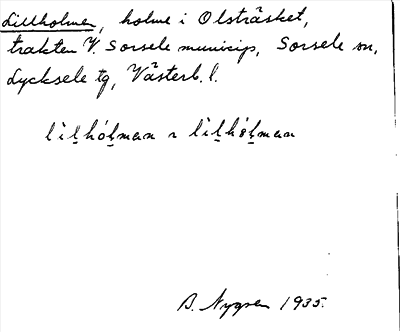 Lillholmen, holme i Olsträsket,
trakten V. Sorsele municip, Sorsele sn,
Lycksele tg, Västerb. l.
lìl̠hól̠man ~ lìl̠hól̠man
B. Nygren 1935.